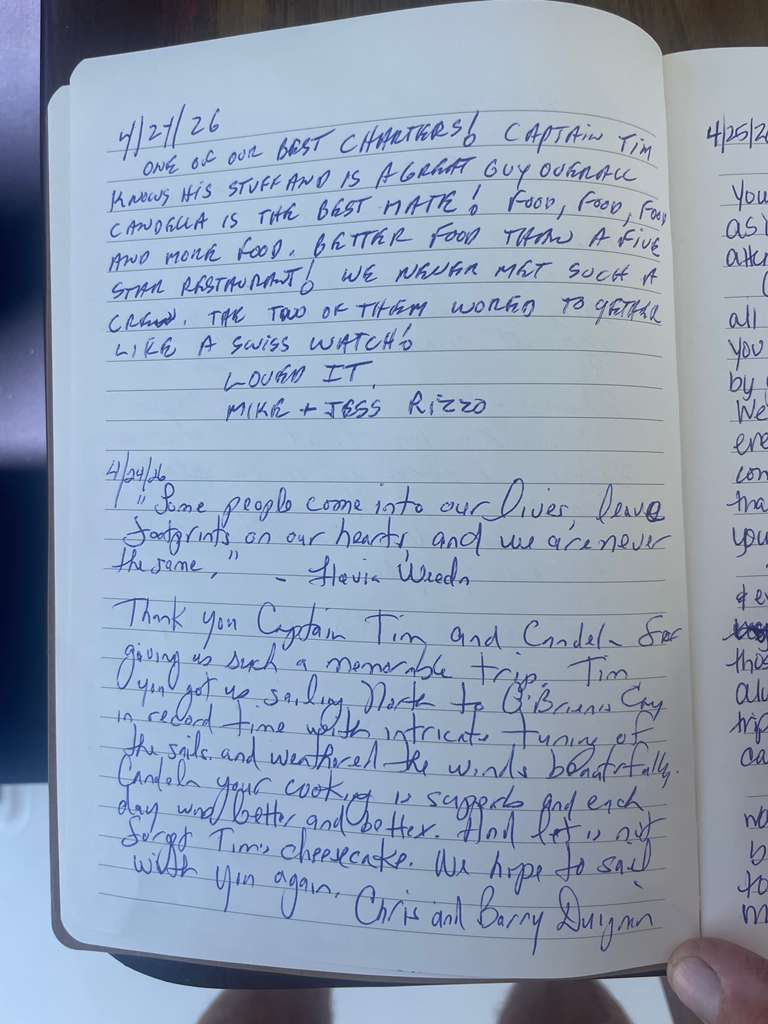 4/27/26
ONE OF OUR BEST CHARTERS! CAPTAIN TIM
KNOWS HIS STUFF AND IS A GREAT GUY OVERALL
CANDELLA IS THE BEST MATE! FOOD, FOOD, FOOD
AND MORE FOOD. BETTER FOOD THAN A FIVE
STAR RESTAURANT! WE NEVER MET SUCH A
CREW. THE TWO OF THEM WORED TO GETHER
LIKE A SWISS WATCH!
LOVED IT.
MIKE + JESS RIZZO
4/24/26
"Some people come into our lives, leave
footprints on our hearts, and we are never
the same," - Flavia Weedn
Thank you Captain Tim and Candela for
giving us such a memorable trip. Tim
you got us sailing North to O'Briens Cay
in record time with intricate tuning of
the sails and weathered the winds beautifully.
Candela your cooking is superb and each
day was better and better. And let is not
forget Tim's cheesecake. We hope to sail
with you again.
Chris and Barry Duignan
4/25/26
You
as
all
you
by
We
ere
con
tha
you
thos
trip
ca
b
to
m